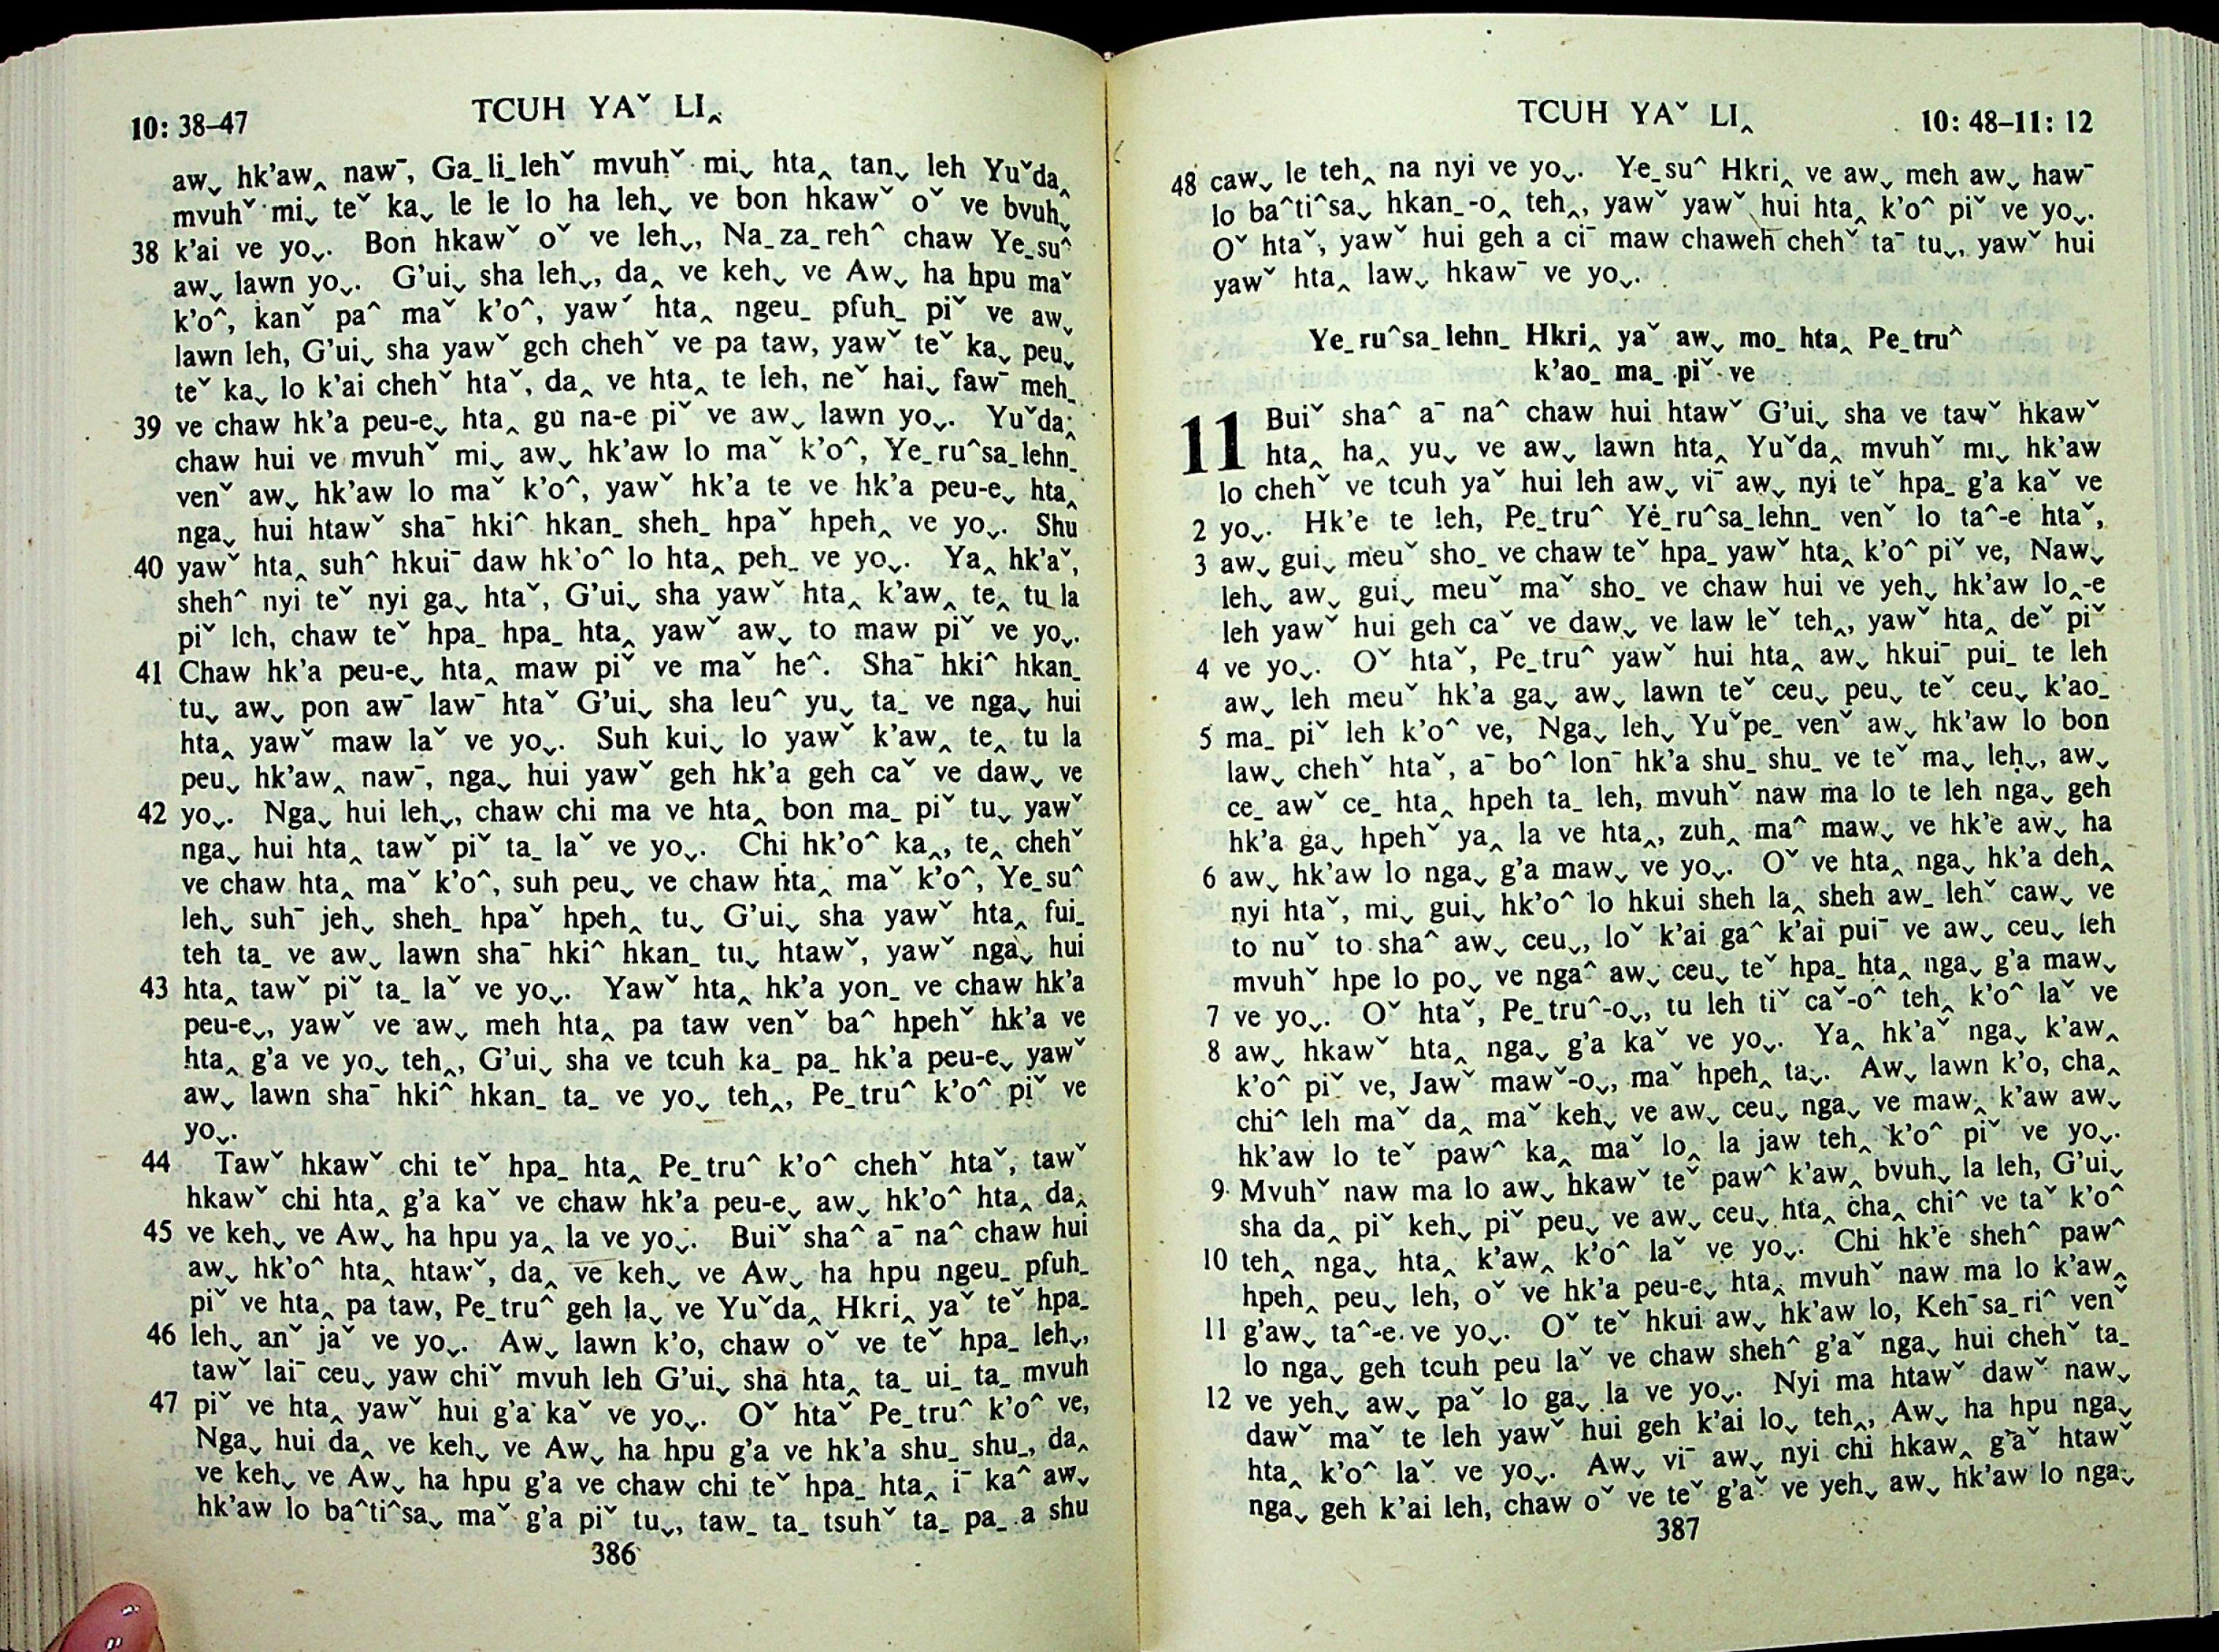 10: 38–47
TCUH YAˇ LI‸
awˬ hk'aw‸ nawˉ, Ga_li_lehˇ mvuhˇ miˬ hta‸ tanˬ leh Yuˇda‸
mvuhˇ miˬ teˇ kaˬ le le lo ha lehˬ ve bon hkawˇ oˇ ve bvuhˬ
38 k'ai ve yoˬ. Bon hkawˇ oˇ ve lehˬ, Na_za_reh^ chaw Ye_su^
awˬ lawn yoˬ. G'uiˬ sha lehˬ, da‸ ve kehˬ ve Awˬ ha hpu maˇ
k'o^, kanˇ pa^ maˇ k'o^, yawˇ hta‸ ngeu_ pfuh_ piˇ ve awˬ
lawn leh, G'uiˬ sha yawˇ geh chehˇ ve pa taw, yawˇ teˇ kaˬ peuˬ
teˇ kaˬ lo k'ai chehˇ htaˇ, da‸ ve hta‸ te leh, neˇ haiˬ fawˉ meh_
39 ve chaw hk'a peu-eˬ hta‸ gu na-e piˇ ve awˬ lawn yoˬ. Yuˇda‸
chaw hui ve mvuhˇ miˬ awˬ hk'aw lo maˇ k'o^, Ye_ru^sa_lehn_
venˇ awˬ hk'aw lo maˇ k'o^, yawˇ hk'a te ve hk'a peu-eˬ hta‸
ngaˬ hui htawˇ shaˉ hki^ hkan_ sheh_ hpaˇ hpeh‸ ve yoˬ. Shu
40 yawˇ hta‸ suh^ hkuiˉ daw hk'o^ lo hta‸ peh_ ve yoˬ. Ya‸ hk'aˇ,
sheh^ nyi teˇ nyi gaˬ htaˇ, G'uiˬ sha yawˇ hta‸ k'aw‸ te‸ tu la
piˇ leh, chaw teˇ hpa_ hpa_ hta‸ yawˇ awˬ to maw piˇ ve yoˬ.
41 Chaw hk'a peu-eˬ hta‸ maw piˇ ve maˇ he^. Shaˉ hki^ hkan_
tuˬ awˬ pon awˉ lawˉ htaˇ G'uiˬ sha leu^ yuˬ ta_ ve ngaˬ hui
hta‸ yawˇ maw laˇ ve yoˬ. Suh kuiˬ lo yawˇ k'aw‸ te‸ tu la
peuˬ hk'aw‸ nawˉ, ngaˬ hui yawˇ geh hk'a geh caˇ ve dawˬ ve
42 yoˬ. Ngaˬ hui lehˬ, chaw chi ma ve hta‸ bon ma_ piˇ tuˬ yawˇ
ngaˬ hui hta‸ tawˇ piˇ ta_ laˇ ve yoˬ. Chi hk'o^ ka‸, te‸ chehˇ
ve chaw hta‸ maˇ k'o^, suh peuˬ ve chaw hta‸ maˇ k'o^, Ye_su^
lehˬ suhˉ jehˬ sheh_ hpaˇ hpeh‸ tuˬ G'uiˬ sha yawˇ hta‸ fui_
teh ta_ ve awˬ lawn shaˉ hki^ hkan_ tuˬ htawˇ, yawˇ ngaˬ hui
43 hta‸ tawˇ piˇ ta_ laˇ ve yoˬ. Yawˇ hta‸ hk'a yon_ ve chaw hk'a
peu-eˬ, yawˇ ve awˬ meh hta‸ pa taw venˇ ba^ hpehˇ hk'a ve
hta‸ g'a ve yoˬ teh‸, G'uiˬ sha ve tcuh ka_ pa_ hk'a peu-eˬ yawˇ
awˬ lawn shaˉ hki^ hkan_ ta_ ve yoˬ teh‸, Pe_tru^ k'o^ piˇ ve
yoˬ.
44 Tawˇ hkawˇ chi teˇ hpa_ hta‸ Pe_tru^ k'o^ chehˇ htaˇ, tawˇ
hkawˇ chi hta‸ g'a kaˇ ve chaw hk'a peu-eˬ awˬ hk'o^ hta‸ da‸
45 ve kehˬ ve Awˬ ha hpu ya‸ la ve yoˬ. Buiˇ sha^ aˉ na^ chaw hui
awˬ hk'o^ hta‸ htawˇ, da‸ ve kehˬ ve Awˬ ha hpu ngeu_ pfuh_
piˇ ve hta‸ pa taw, Pe_tru^ geh laˬ ve Yuˇda‸ Hkri‸ yaˇ teˇ hpa_
46 lehˬ anˇ jaˇ ve yoˬ. Awˬ lawn k'o, chaw oˇ ve teˇ hpa_ lehˬ,
tawˇ laiˉ ceuˬ yaw chiˇ mvuh leh G'uiˬ sha hta‸ ta_ ui_ ta_ mvuh
47 piˇ ve hta‸ yawˇ hui g'a kaˇ ve yoˬ. Oˇ htaˇ Pe_tru^ k'o^ ve,
Ngaˬ hui da‸ ve kehˬ ve Awˬ ha hpu g'a ve hk'a shu_ shu_, da‸
ve kehˬ ve Awˬ ha hpu g'a ve chaw chi teˇ hpa_ hta‸ iˉ ka^ awˬ
hk'aw lo ba^ti^saˬ maˇ g'a piˇ tuˬ, taw_ ta_ tsuhˇ ta_ pa_ a shu
386
TCUH YAˇ LI‸
10: 48–11: 12
48 cawˬ le teh‸ na nyi ve yoˬ. Ye_su^ Hkri‸ ve awˬ meh awˬ hawˉ
lo ba^ti^saˬ hkan_-o‸ teh‸, yawˇ yawˇ hui hta‸ k'o^ piˇ ve yoˬ.
Oˇ htaˇ, yawˇ hui geh a ciˉ maw chawehˉ chehˇ taˉ tuˬ, yawˇ hui
yawˇ hta‸ lawˬ hkawˉ ve yoˬ.
Ye_ru^sa_lehn_ Hkri‸ yaˇ awˬ mo_ hta‸ Pe_tru^
k'ao_ ma_ piˇ ve
11 Buiˇ sha^ aˉ na^ chaw hui htawˇ G'uiˬ sha ve tawˇ hkawˇ
hta‸ ha‸ yuˬ ve awˬ lawn hta‸ Yuˇda‸ mvuhˇ miˬ hk'aw
lo chehˇ ve tcuh yaˇ hui leh awˬ viˉ awˬ nyi teˇ hpa_ g'a kaˇ ve
2 yoˬ. Hk'e te leh, Pe_tru^ Ye_ru^sa_lehn_ venˇ lo ta^-e htaˇ,
3 awˬ guiˬ meuˇ sho_ ve chaw teˇ hpa_ yawˇ hta‸ k'o^ piˇ ve, Nawˬ
lehˬ awˬ guiˬ meuˇ maˇ sho_ ve chaw hui ve yehˬ hk'aw lo‸-e
leh yawˇ hui geh caˇ ve dawˬ ve law leˇ teh‸, yawˇ hta‸ deˇ piˇ
4 ve yoˬ. Oˇ htaˇ, Pe_tru^ yawˇ hui hta‸ awˬ hkuiˉ pui_ te leh
awˬ leh meuˇ hk'a gaˬ awˬ lawn teˇ ceuˬ peuˬ teˇ ceuˬ k'ao_
5 ma_ piˇ leh k'o^ ve, Ngaˬ lehˬ Yuˇpe_ venˇ awˬ hk'aw lo bon
lawˬ chehˇ htaˇ, aˉ bo^ lonˉ hk'a shu_ shu_ ve teˇ maˬ lehˬ, awˬ
ce_ awˇ ce_ hta‸ hpeh ta_ leh, mvuhˇ naw ma lo te leh ngaˬ geh
hk'a gaˬ hpehˇ ya‸ la ve hta‸, zuh‸ ma^ mawˬ ve hk'e awˬ ha
6 awˬ hk'aw lo ngaˬ g'a mawˬ ve yoˬ. Oˇ ve hta‸ ngaˬ hk'a deh‸
nyi htaˇ, miˬ guiˬ hk'o^ lo hkui sheh la‸ sheh aw_ lehˇ cawˬ ve
to nuˇ to sha^ awˬ ceuˬ, loˇ k'ai ga^ k'ai puiˉ ve awˬ ceuˬ leh
mvuhˇ hpe lo poˬ ve nga^ awˬ ceuˬ teˇ hpa_ hta‸ ngaˬ g'a mawˬ
7 ve yoˬ. Oˇ htaˇ, Pe_tru^-oˬ, tu leh tiˇ caˇ-o^ teh‸ k'o^ laˇ ve
8 awˬ hkawˇ hta‸ ngaˬ g'a kaˇ ve yoˬ. Ya‸ hk'aˇ ngaˬ k'aw‸
k'o^ piˇ ve, Jawˇ mawˇ-oˬ, maˇ hpeh‸ taˬ. Awˬ lawn k'o, cha‸
chi^ leh maˇ da‸ maˇ kehˬ ve awˬ ceuˬ ngaˬ ve maw‸ k'aw awˬ
hk'aw lo teˇ paw^ ka‸ maˇ lo‸ la jaw teh‸ k'o^ piˇ ve yoˬ.
9 Mvuhˇ naw ma lo awˬ hkawˇ teˇ paw^ k'aw‸ bvuhˬ la leh, G'uiˬ
sha da‸ piˇ kehˬ piˇ peuˬ ve awˬ ceuˬ hta‸ cha‸ chi^ ve taˇ k'o^
10 teh‸ ngaˬ hta‸ k'aw‸ k'o^ laˇ ve yoˬ. Chi hk'e sheh^ paw^
hpeh‸ peuˬ leh, oˇ ve hk'a peu-eˬ hta‸ mvuhˇ naw ma lo k'aw‸
11 g'awˬ ta^-e ve yoˬ. Oˇ teˇ hkui awˬ hk'aw lo, Kehˉsa_ri^ venˇ
lo ngaˬ geh tcuh peu laˇ ve chaw sheh^ g'aˇ ngaˬ hui chehˇ ta_
12 ve yehˬ awˬ paˇ lo gaˬ la ve yoˬ. Nyi ma htawˇ dawˇ nawˬ
dawˇ maˇ te leh yawˇ hui geh k'ai loˬ teh‸, Awˬ ha hpu ngaˬ
hta‸ k'o^ laˇ ve yoˬ. Awˬ viˉ awˬ nyi chi hkaw‸ g'aˇ htawˇ
ngaˬ geh k'ai leh, chaw oˇ ve teˇ g'aˇ ve yehˬ awˬ hk'aw lo ngaˬ
387